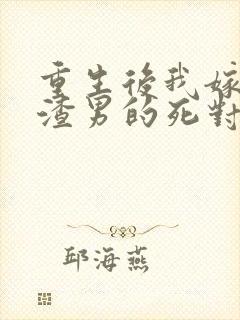 重生後我嫁
渣男的死對
邱海燕